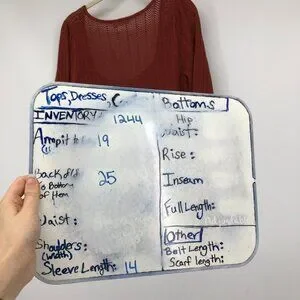 Tops, Dresses,
INVENTORY# 1244
Armpit 19
Back
to Bottom 25
of Hem
Waist:
Shoulders:
(width)
Sleeve Length: 14
Bottoms
Hip
Waist:
Rise:
Inseam
Full Length:
Other
Belt Length:
Scarf length: